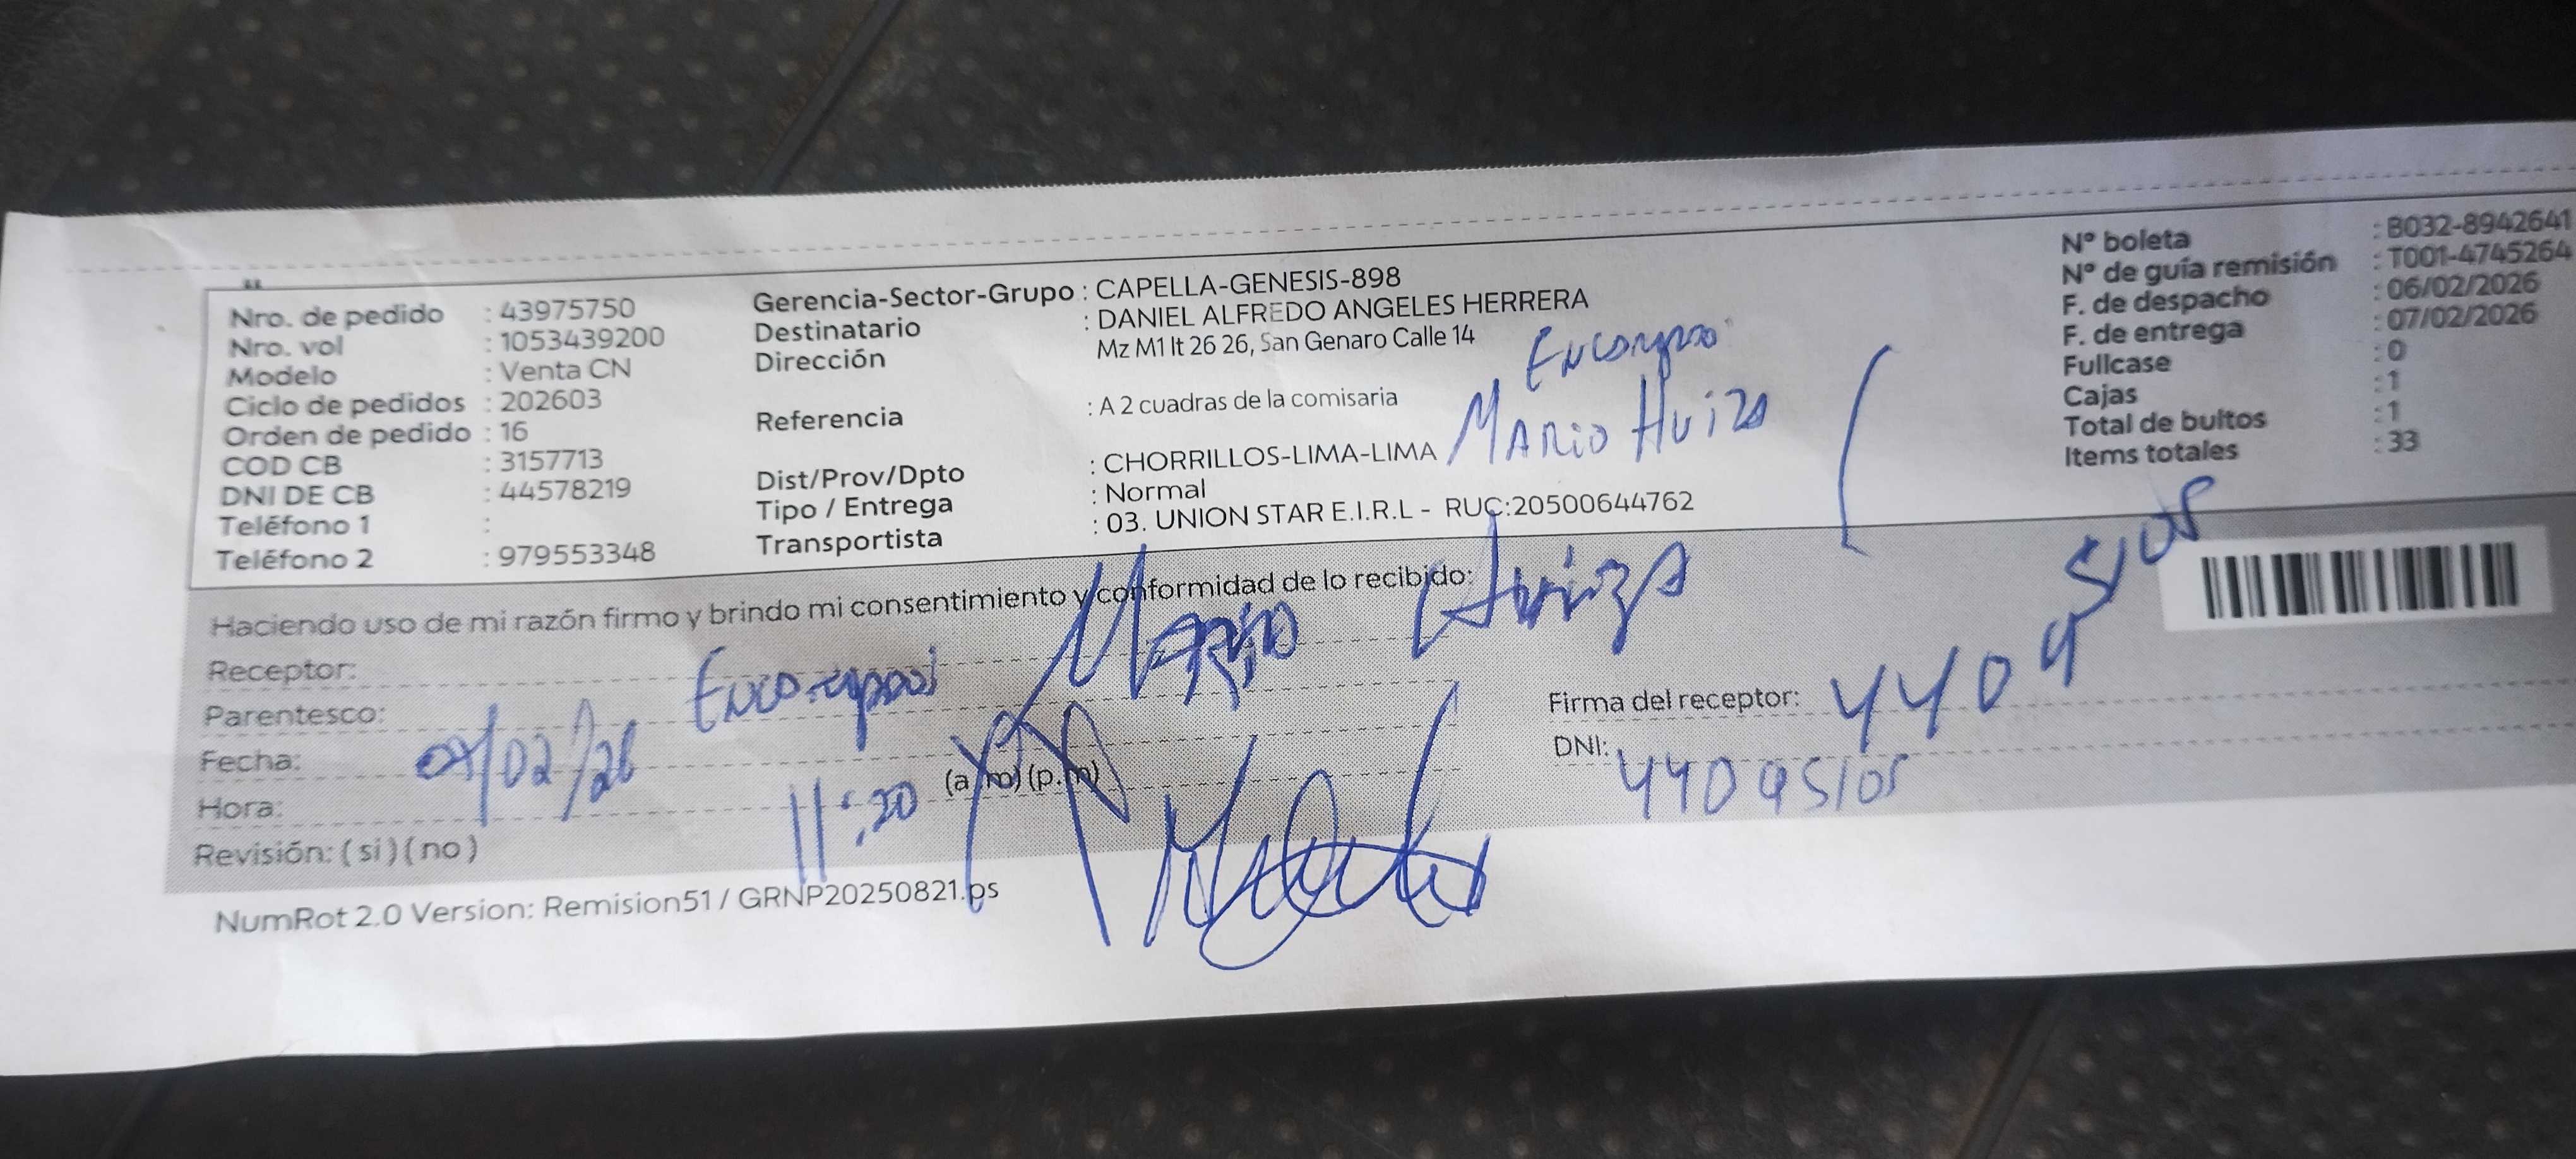 Nro. de pedido : 43975750
Nro. vol : 1053439200
Modelo : Venta CN
Ciclo de pedidos : 202603
Orden de pedido : 16
COD CB : 3157713
DNI DE CB : 44578219
Teléfono 1 :
Teléfono 2 : 979553348
Gerencia-Sector-Grupo : CAPELLA-GENESIS-898
Destinatario : DANIEL ALFREDO ANGELES HERRERA
Dirección Mz M1 lt 26 26, San Genaro Calle 14
Referencia : A 2 cuadras de la comisaria
Dist/Prov/Dpto : CHORRILLOS-LIMA-LIMA
Tipo / Entrega : Normal
Transportista : 03. UNION STAR E.I.R.L - RUC:20500644762
MARIO HUIZA
N° boleta : B032-8942641
N° de guía remisión : T001-4745264
F. de despacho : 06/02/2026
F. de entrega : 07/02/2026
Fullcase : 0
Cajas : 1
Total de bultos : 1
Items totales : 33
Haciendo uso de mi razón firmo y brindo mi consentimiento y conformidad de lo recibido:
Receptor: MARIO HUIZA
Parentesco:
Fecha: 07/02/26
Hora: 11:20 (a.m) (p.m)
Revisión: ( si ) ( no )
Firma del receptor:
DNI:
NumRot 2.0 Version: Remision51 / GRNP20250821.ps